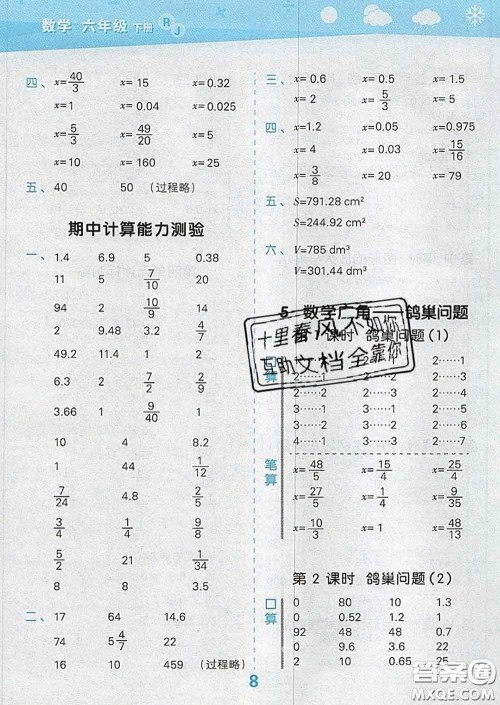 数学 六年级 下册 RJ
四、 x=40/3 x= 15 x= 0.32
x=1 x= 0.04 x= 0.025
x=5/3 x= 49/20 x= 5
x=10 x= 160 x= 25
五、 40 50 (过程略)
期中计算能力测验
一、 1.4 6.9 5 0.38
11 5 7/10 20
94 2 14 3/10
2 9.48 0.2 4/5
49.2 11 1 60
2 14 7/9 2/3
3.66 1 9/40 1
10 4 8.2
44 2 1/12
7/24 4.8 2/3
3/4 1/4 9/8
5/2 21 1/3
8 8 3.5
二、 17 64 14.6
74 5 4/7 22
16 10 459 (过程略)
三、 x= 0.6 x= 0.5 x= 1.5
x= 2 x= 5/3 x= 5
四、 x=1.2 x= 0.05 x=0.975
x= 4 x= 0.03 x= 15/16
x= 3/8 x= 20 x= 4
五、 S=791.28 cm²
S=244.92 cm²
六、 V=785 dm³
V=301.44 dm³
5 数学广角——鸽巢问题
课时 鸽巢问题(1)
十里春风不如你
互助文档全靠你
口算
2……1
2……1
3……1 3……1 2……1
4……1 4……1 2……4
5……1 5……1 2……7
笔算
x= 48/5 x= 15/4 x= 25/4
x= 27/5 x= 1/4 x= 9/35
x= 10/3 x= 1 x= 48/13
第 2 课时 鸽巢问题(2)
口算
0 80 10 1.3
0 0.52 1.2 1
92 48 0 0
2 10 0.65 25
8
答案圈
MXQE.COM